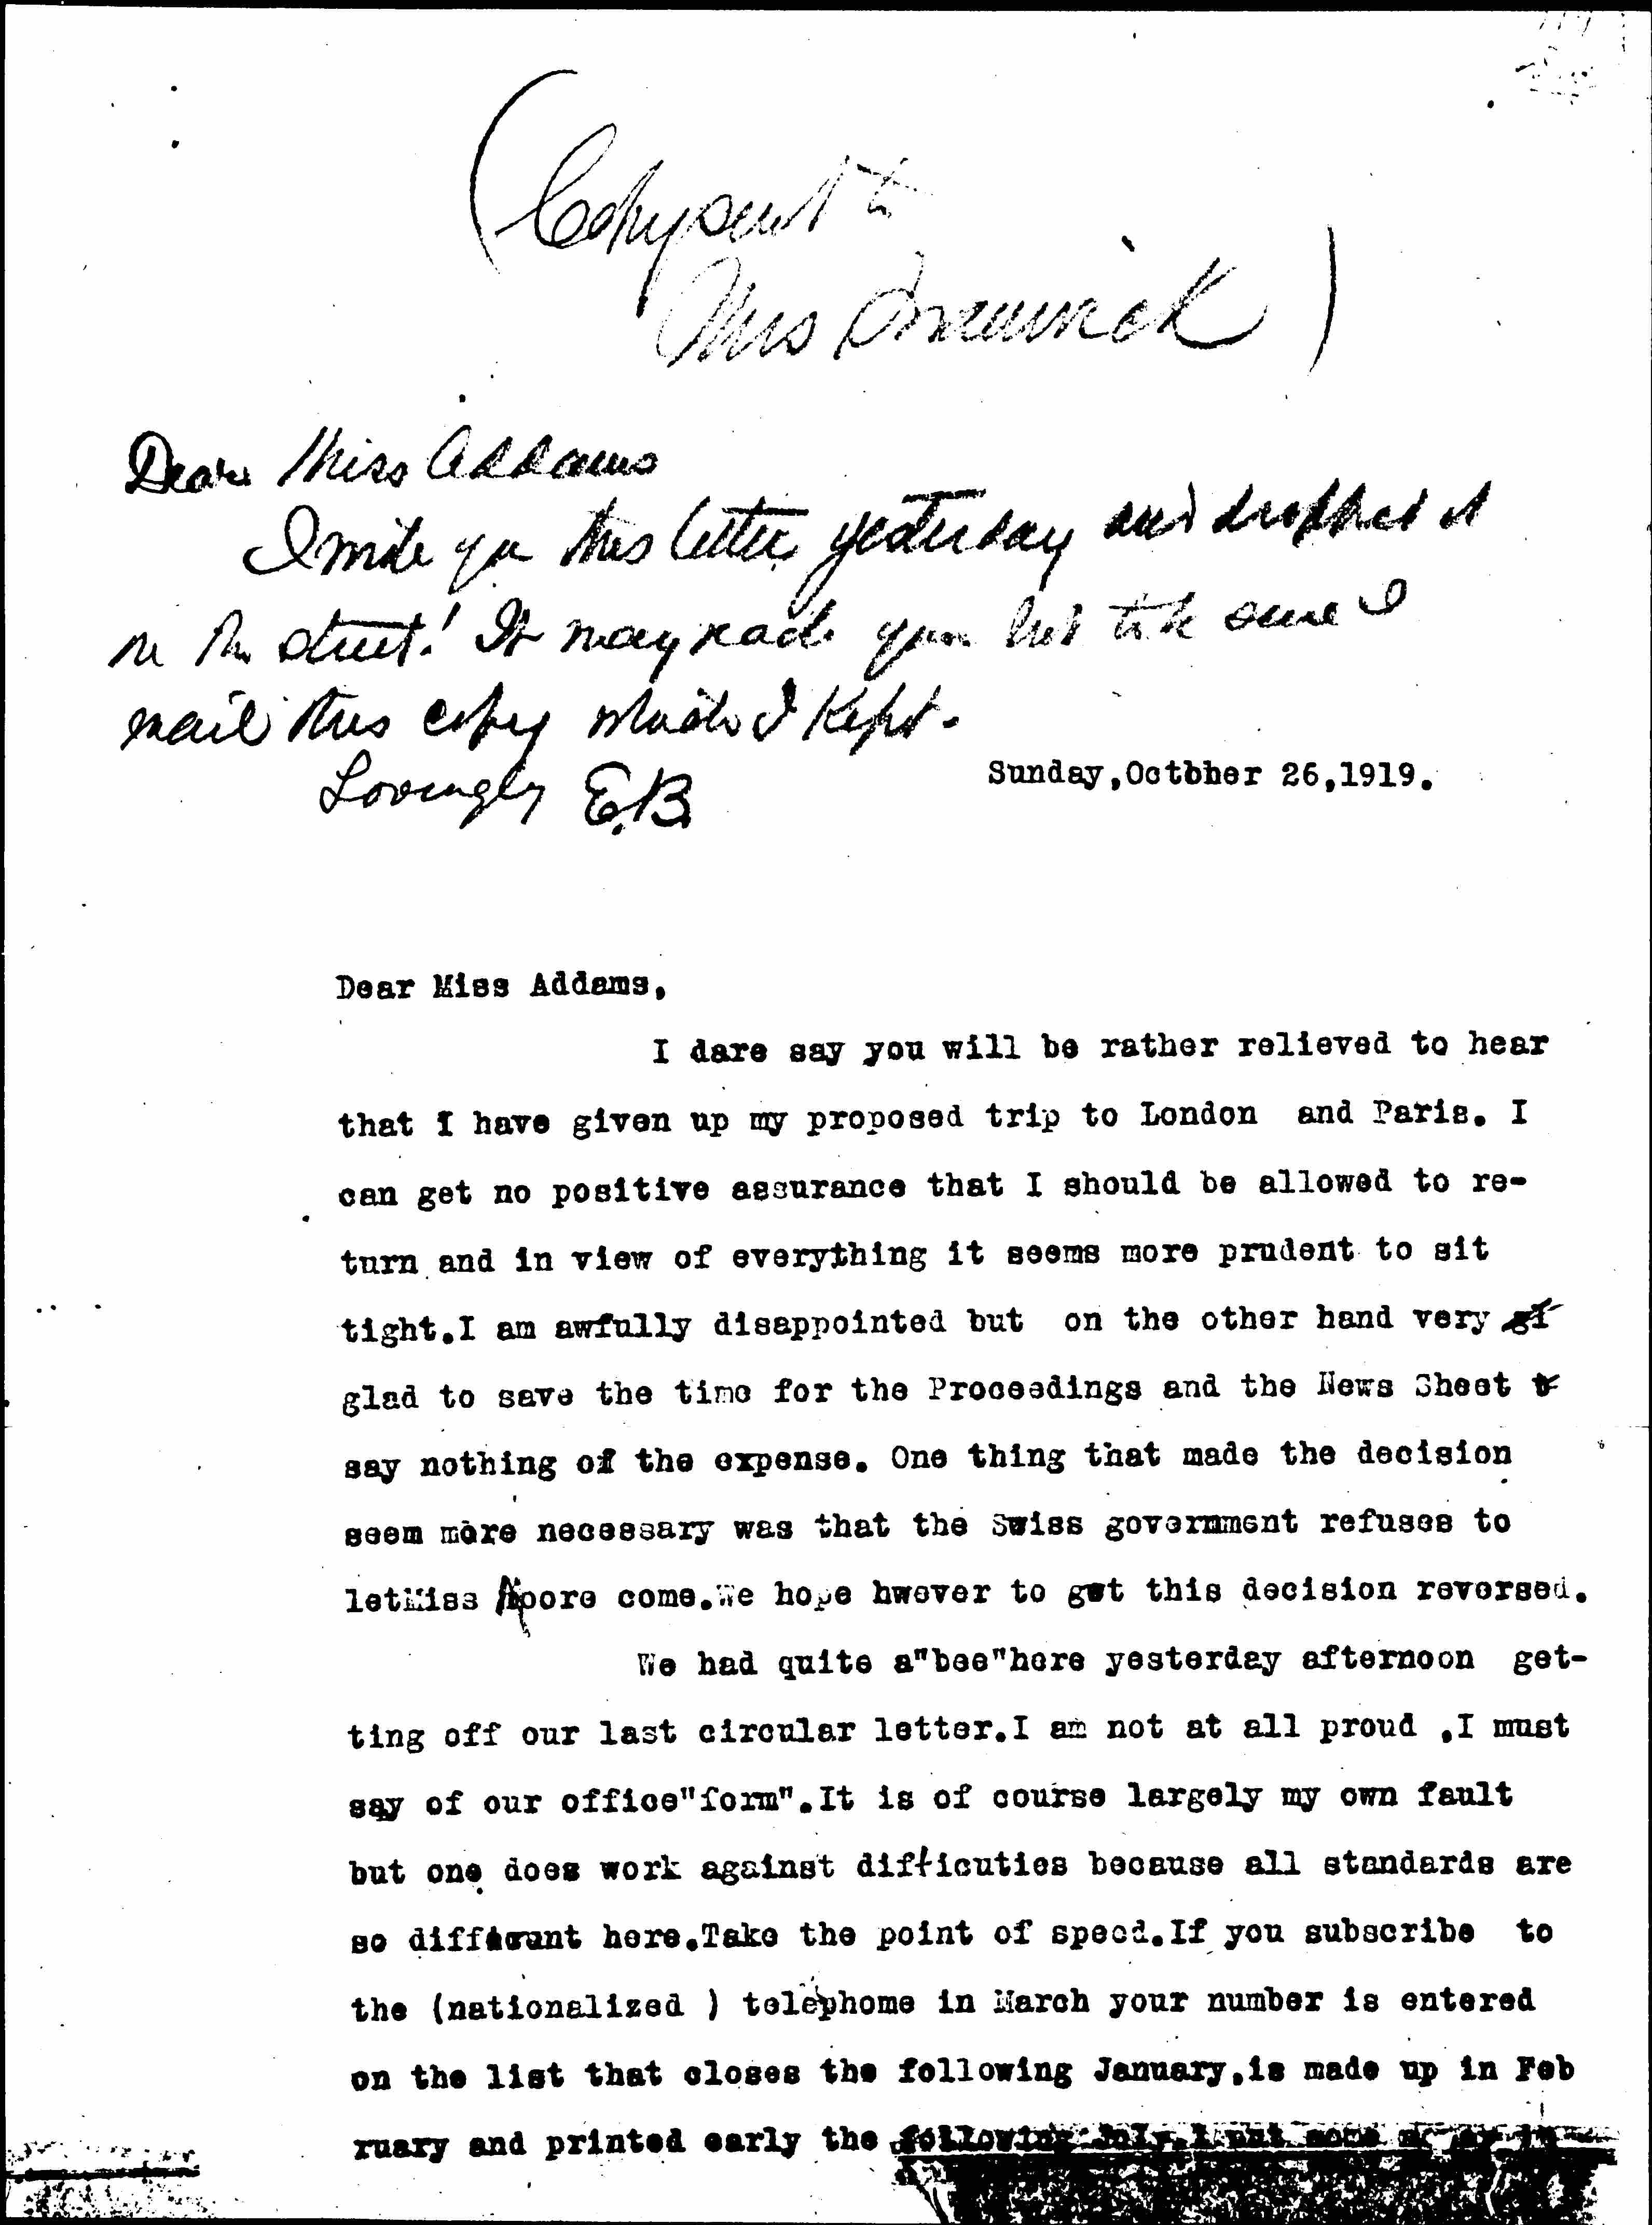 (Copy sent to
Mrs
Dear Miss Addams
I wrote you this letter yesterday and dropped it
in the street! It may reach you but to be sure I
mail this copy which I kept.
Lovingly E.B.
Sunday,Octbher 26,1919.
Dear Miss Addams,
I dare say you will be rather relieved to hear
that I have given up my proposed trip to London and Paris. I
can get no positive assurance that I should be allowed to re-
turn and in view of everything it seems more prudent to sit
tight.I am awfully disappointed but on the other hand very gl
glad to save the time for the Proceedings and the News Sheet t
say nothing of the expense. One thing that made the decision
seem more necessary was that the Swiss government refuses to
letMiss Moore come.We hope hwever to get this decision reversed.
We had quite a"bee"here yesterday afternoon get-
ting off our last circular letter.I am not at all proud ,I must
say of our office"form".It is of course largely my own fault
but one does work against difficuties because all standards are
so different here.Take the point of speed.If you subscribe to
the (nationalized ) telephome in March your number is entered
on the list that closes the following January,is made up in Feb
ruary and printed early the following July.I put some